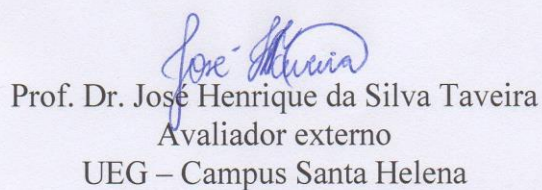 José
Prof. Dr. José Henrique da Silva Taveira
Avaliador externo
UEG – Campus Santa Helena